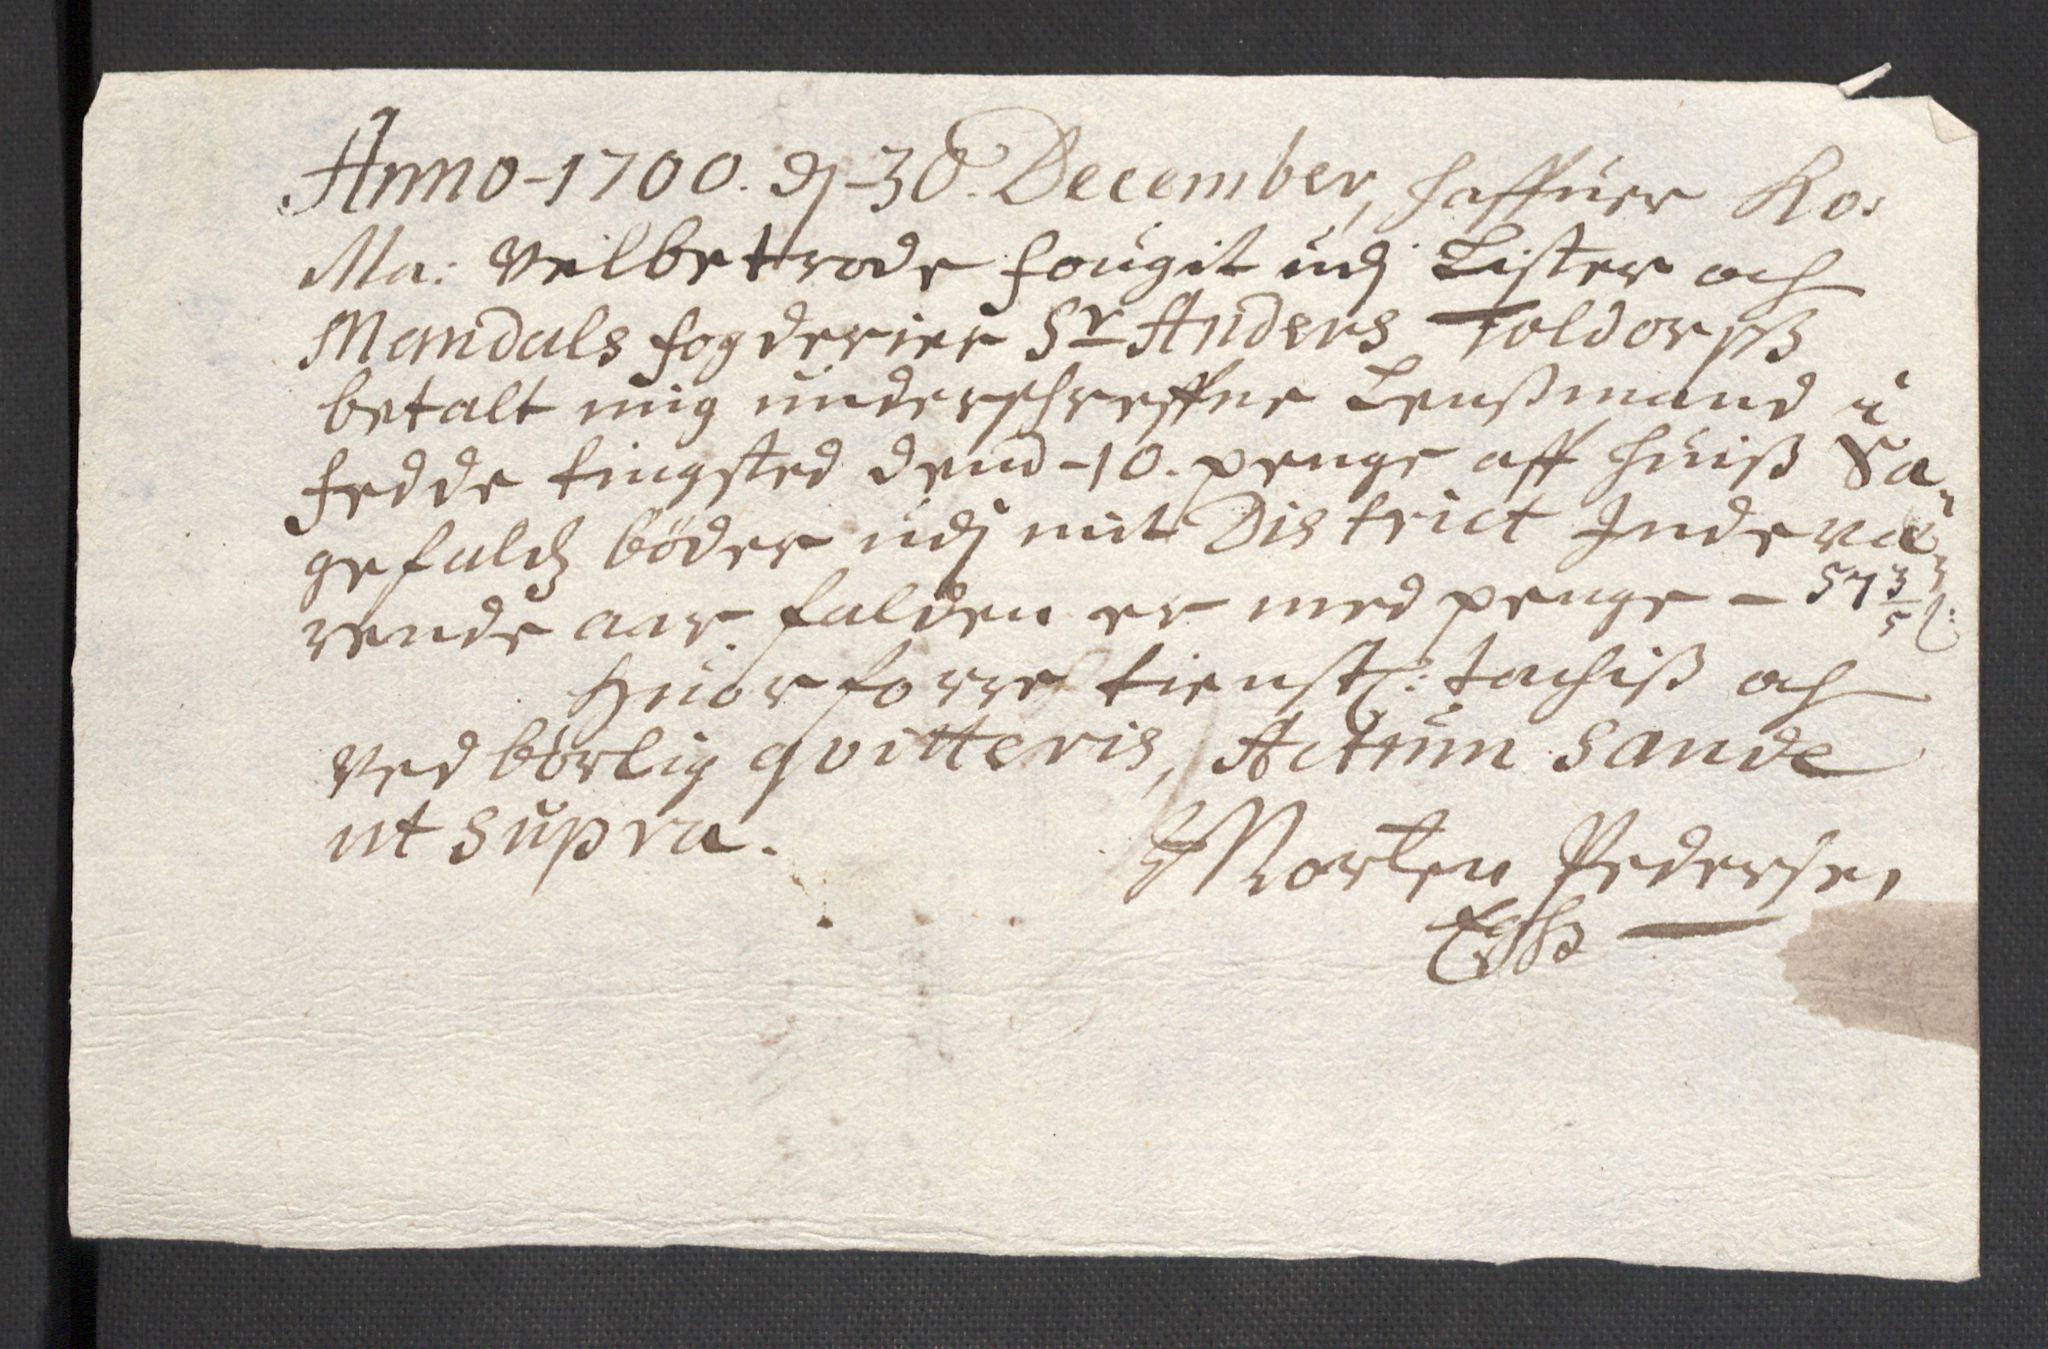 Anno-1700. dj-30. December, haffuer Ko:
Ma: Velbetrode fougit udj Lister och
Mandals fogderier Sr Anders Toldorpß
betalt mig underschreffne Lenßmand i
fedde tingsted dend-10. penge aff huiß Sa-
gefaldz böder udj mit District Indevæ-
rende aar falden er med penge - 57 3/5 ß:
Huorforre tienstl: tachiß och
Vedbörlig qvitteris, Actum Sande
ut supra.
Morten Pederse,
Eghß